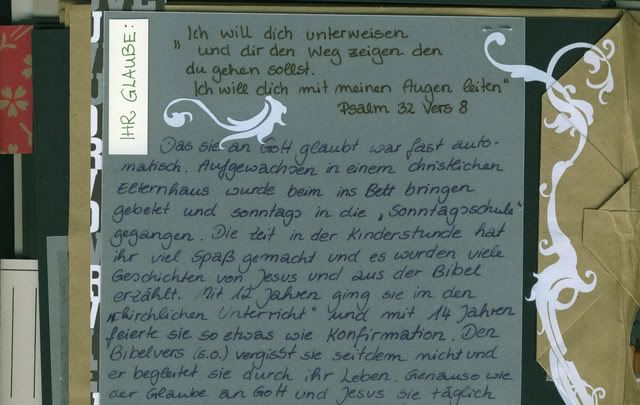 IHR GLAUBE:
„Ich will dich unterweisen
und dir den Weg zeigen den
du gehen sollst.
Ich will dich mit meinen Augen leiten"
Psalm 32 Vers 8
Das sie an Gott glaubt war fast auto-
matisch. Aufgewachsen in einem christlichen
Elternhaus wurde beim ins Bett bringen
gebetet und sonntags in die „Sonntagsschule"
gegangen. Die Zeit in der Kinderstunde hat
ihr viel Spaß gemacht und es wurden viele
Geschichten von Jesus und aus der Bibel
erzählt. Mit 12 Jahren ging sie in den
„kirchlichen Unterricht" und mit 14 Jahren
feierte sie so etwas wie Konfirmation. Den
Bibelvers (s.o.) vergisst sie seitdem nicht und
er begleitet sie durch ihr Leben. Genauso wie
der Glaube an Gott und Jesus sie täglich